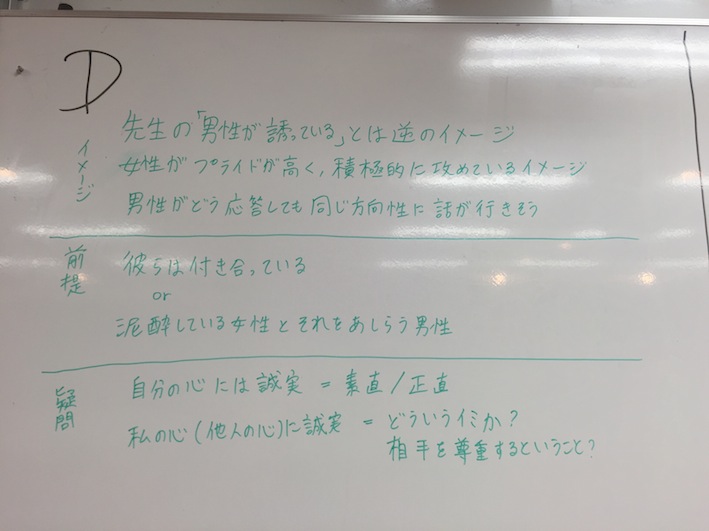 D
イメージ
先生の「男性が誘っている」とは逆のイメージ
女性がプライドが高く、積極的に攻めているイメージ
男性がどう応答しても同じ方向性に話が行きそう
前提
彼らは付き合っている
or
泥酔している女性とそれをあしらう男性
疑問
自分の心には誠実 = 素直/正直
私の心(他人の心)に誠実 = どういうイミか?
相手を尊重するということ?